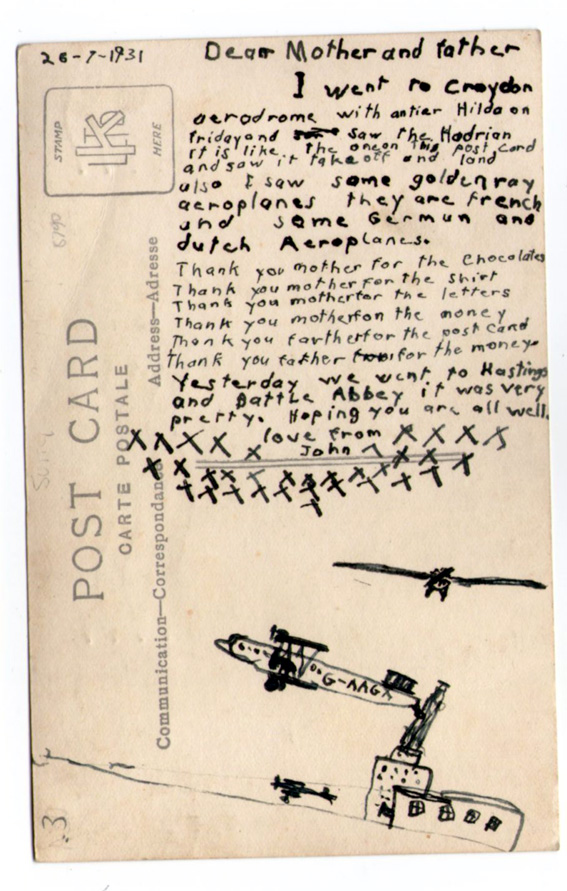 26-7-1931
Dear Mother and father
I went to Croydon
aerodrome with antier Hilda on
Friday and saw the Hadrian
It is like the one on this post card
and saw it take off and land
also I saw some golden ray
aeroplanes they are french
und some Germun and
dutch Aeroplanes.
Thank you mother for the Chocolates
Thank you mother for the shirt
Thank you motherfor the letters
Thank you motherfon the money
Thank you fartherfor the post card
Thank you father for the money.
Yesterday we went to Hastings
and Battle Abbey it was very
pretty. Hoping you are all well.
X X X X love from X X X X X
X X X John X X X X X
X X X X X X X X X X
X X X X X X X X X
X
STAMP
LKS
HERE
6790
POST CARD
CARTE POSTALE
Address—Adresse
Communication—Correspondance
G-AAGX
3